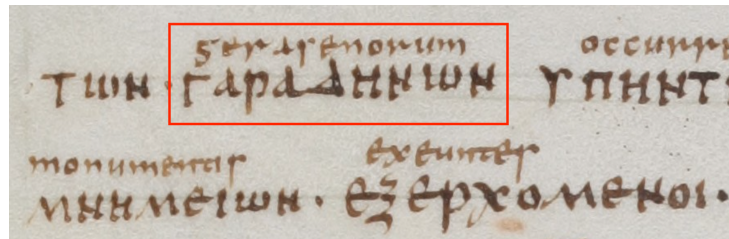 gerasenorum occurre
· ΤωΝ · ΓαραΔΗΝωΝ ΥΠΗΝΤ
monumentis exeuntes
ΜΝΗΜεΙωΝ · εξερχομεΝοι ·